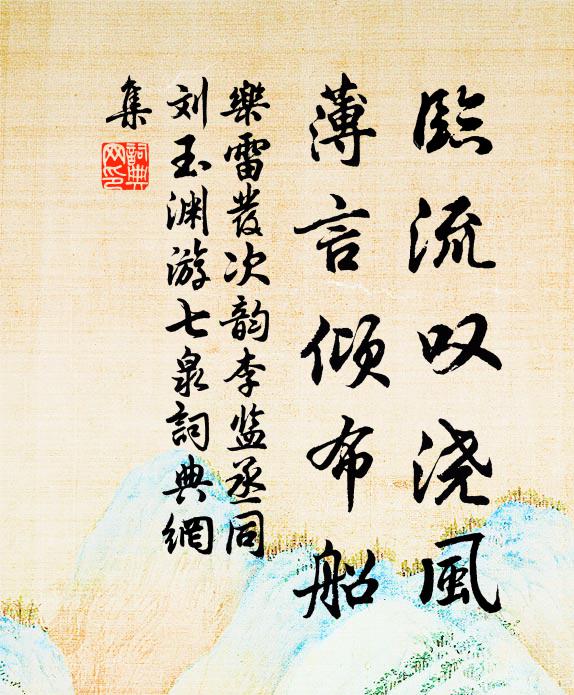 臨流叹浇風
薄言傾布船
樂雷發次韵李监丞同
刘玉渊游七泉詞典網
集
詞典網印